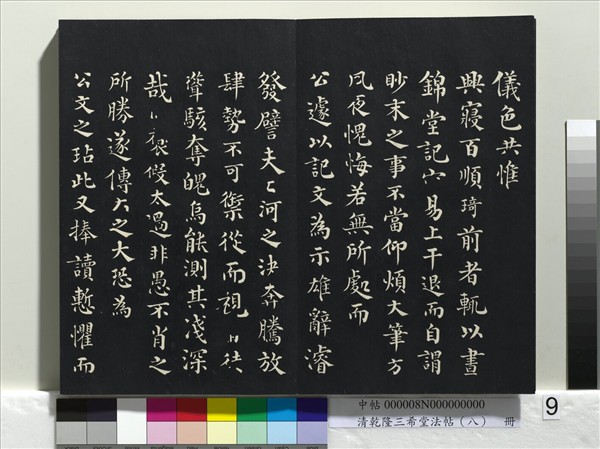 儀色共惟
興寢百順琦前者輒以晝
錦堂記易上干退而自謂
眇末之事不當仰煩大筆方
夙夜愧悔若無所處而
公遽以記文為示雄辭濬
發譬夫河之決奔騰放
肆勢不可禦從而視
聳駭奪魄烏能測其淺深
哉假太過非愚不肖之
所勝遂傳之大恐為
公文之玷此又捧讀慙懼而
中帖 000008N000000000
清乾隆三希堂法帖（八） 冊
9